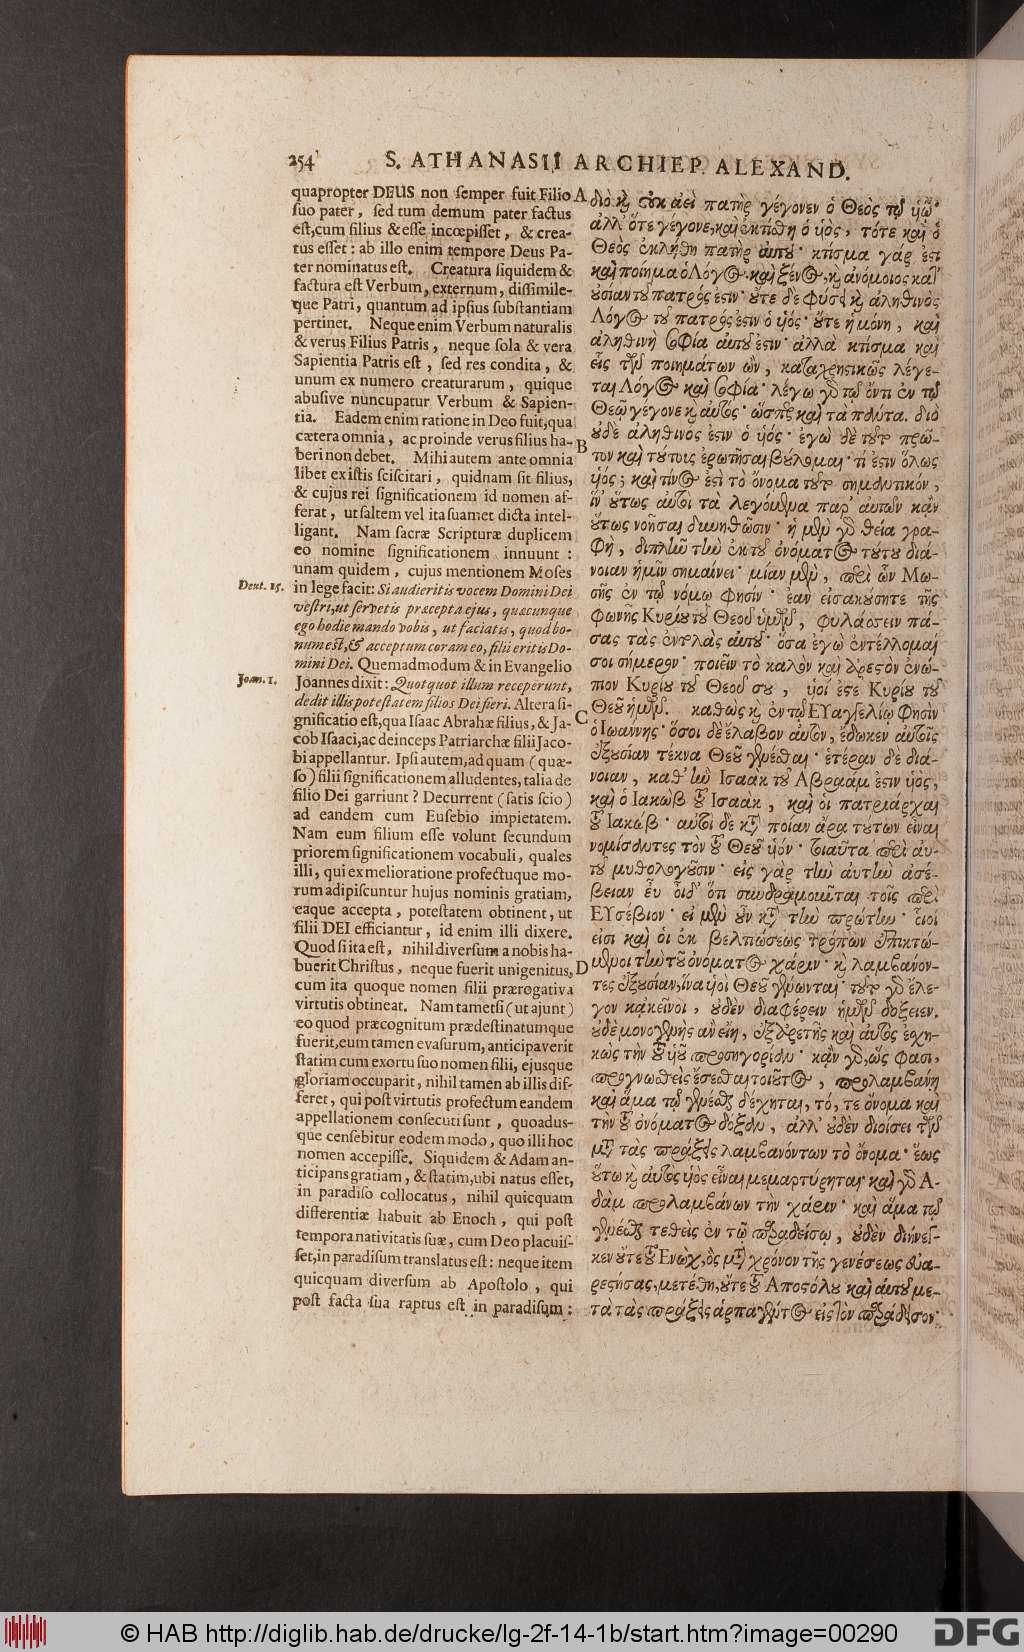 254
S. ATHANASII ARCHIEP. ALEXAND.
quapropter DEUS non ſemper fuit Filio
ſuo pater, ſed tum demum pater factus
eſt, cum filius & eſſe incœpiſſet, & crea-
tus eſſet: ab illo enim tempore Deus Pa-
ter nominatus eſt. Creatura ſiquidem &
factura eſt Verbum, externum, diſſimile-
que Patri, quantum ad ipſius ſubſtantiam
pertinet. Neque enim Verbum naturalis
& verus Filius Patris, neque ſola & vera
Sapientia Patris eſt, ſed res condita, &
unum ex numero creaturarum, quique
abuſive nuncupatur Verbum & Sapien-
tia. Eadem enim ratione in Deo fuit, qua
cætera omnia, ac proinde verus filius ha-
beri non debet. Mihi autem ante omnia
libet ex iſtis ſciſcitari, quidnam ſit filius,
& cujus rei ſignificationem id nomen af-
ferat, ut ſaltem vel ita ſuamet dicta intel-
ligant. Nam ſacræ Scripturæ duplicem
eo nomine ſignificationem innuunt:
unam quidem, cujus mentionem Moſes
Deut. 15.
in lege facit: Si audieritis vocem Domini Dei
veſtri, ut ſervetis præcepta ejus, quæcunque
ego hodie mando vobis, ut faciatis, quod bo-
num eſt, & acceptum coram eo, filii eritis Do-
mini Dei. Quemadmodum & in Evangelio
Joan. 1.
Joannes dixit: Quotquot illum receperunt,
dedit illis poteſtatem filios Dei fieri. Altera ſi-
gnificatio eſt, qua Iſaac Abrahæ filius, & Ja-
cob Iſaaci, ac deinceps Patriarchæ filii Jaco-
bi appellantur. Ipſi autem, ad quam (quæ-
ſo) filii ſignificationem alludentes, talia de
filio Dei garriunt? Decurrent (ſatis ſcio)
ad eandem cum Euſebio impietatem.
Nam eum filium eſſe volunt ſecundum
priorem ſignificationem vocabuli, quales
illi, qui ex melioratione profectuque mo-
rum adipiſcuntur hujus nominis gratiam,
eaque accepta, poteſtatem obtinent, ut
filii DEI efficiantur, id enim illi dixere.
Quod ſi ita eſt, nihil diverſum a nobis ha-
buerit Chriſtus, neque fuerit unigenitus,
cum ita quoque nomen filii prærogativa
virtutis obtineat. Nam tametſi (ut ajunt)
eo quod præcognitum prædeſtinatumque
fuerit, eum tamen evaſurum, anticipaverit
ſtatim cum exortu ſuo nomen filii, ejusque
gloriam occuparit, nihil tamen ab illis dif-
feret, qui poſt virtutis profectum eandem
appellationem conſecuti ſunt, quoadus-
que cenſebitur eodem modo, quo illi hoc
nomen accepiſſe. Siquidem & Adam an-
ticipans gratiam, & ſtatim, ubi natus eſſet,
in paradiſo collocatus, nihil quicquam
differentiæ habuit ab Enoch, qui poſt
tempora nativitatis ſuæ, cum Deo placuiſ-
ſet, in paradiſum translatus eſt: neque item
quicquam diverſum ab Apoſtolo, qui
poſt facta ſua raptus eſt in paradiſum:
A
B
C
D
διὸ καὶ οὐκ ἀεὶ πατὴρ γέγονεν ὁ Θεὸς τῷ υἱῷ·
ἀλλ' ὅτε γέγονε, καὶ ἐκτίσθη ὁ υἱὸς, τότε καὶ ὁ
Θεὸς ἐκλήθη πατὴρ αὐτοῦ· κτίσμα γάρ ἐστι
καὶ ποίημα ὁ Λόγος· καὶ ξένος, καὶ ἀνόμοιος κατ'
οὐσίαν τοῦ πατρός ἐστιν· οὔτε δὲ φύσει καὶ ἀληθινὸς
Λόγος τοῦ πατρός ἐστιν ὁ υἱός· οὔτε ἡ μόνη, καὶ
ἀληθινὴ σοφία αὐτοῦ ἐστιν· ἀλλὰ κτίσμα καὶ
εἷς τῶν ποιημάτων ὢν, καταχρηστικῶς λέγε-
ται Λόγος καὶ σοφία· λέγω γὰρ τῷ ὄντι ἐν τῷ
Θεῷ γέγονε καὶ αὐτὸς· ὥσπερ καὶ τὰ πάντα. διὸ
οὐδὲ ἀληθινός ἐστιν ὁ υἱός· ἐγὼ δὲ τοῦτο πρῶ-
τον καὶ τούτοις ἐρωτῆσαι βούλομαι· τί ἐστιν ὅλως
υἱός; καὶ τίνος ἐστὶ τὸ ὄνομα τοῦτο σημαντικόν,
ἵν' οὕτως αὐτοὶ τὰ λεγόμενα παρ' αὐτῶν κἂν
οὕτως νοῆσαι δυνηθῶσιν· ἡ μὲν γὰρ θεία γρα-
φὴ, διπλῆν τὴν ἐκ τοῦ ὀνόματος τούτου διά-
νοιαν ἡμῖν σημαίνει· μίαν μὲν, περὶ ὧν Μω-
σῆς ἐν τῷ νόμῳ φησίν· ἐὰν εἰσακούσητε τῆς
φωνῆς Κυρίου τοῦ Θεοῦ ὑμῶν, φυλάσσειν πά-
σας τὰς ἐντολὰς αὐτοῦ· ὅσα ἐγὼ ἐντέλλομαί
σοι σήμερον· ποιεῖν τὸ καλὸν καὶ ἀρεστὸν ἐνώ-
πιον Κυρίου τοῦ Θεοῦ σου, υἱοί ἐστε Κυρίου τοῦ
Θεοῦ ἡμῶν. καθὼς καὶ ἐν τῷ Εὐαγγελίῳ φησὶν
ὁ Ἰωάννης· ὅσοι δὲ ἔλαβον αὐτὸν, ἔδωκεν αὐτοῖς
ἐξουσίαν τέκνα Θεοῦ γενέσθαι· ἑτέραν δὲ διά-
νοιαν, καθ' ἣν Ἰσαὰκ τοῦ Ἀβραάμ ἐστιν υἱὸς,
καὶ ὁ Ἰακὼβ τοῦ Ἰσαάκ, καὶ οἱ πατριάρχαι
τοῦ Ἰακώβ· αὐτοὶ δὲ κατὰ ποίαν ἄρα τούτων εἶναι
νομίσαντες τὸν τοῦ Θεοῦ υἱόν· τοιαῦτα περὶ αὐ-
τοῦ μυθολογοῦσιν· εἰς γὰρ τὴν αὐτὴν ἀσέ-
βειαν εὖ οἶδ' ὅτι συνδραμοῦνται τοῖς περὶ
Εὐσέβιον· εἰ μὲν οὖν κατὰ τὴν πρώτην· οἷοί
εἰσι καὶ οἱ ἐκ βελτιώσεως τρόπων ἐπικτώ-
μενοι τὴν τοῦ ὀνόματος χάριν· καὶ λαμβάνον-
τες ἐξουσίαν, ἵνα υἱοὶ Θεοῦ γένωνται· τοῦτο γὰρ ἔλε-
γον κἀκεῖνοι, οὐδὲν διαφέρειν ἡμῶν δόξειεν.
οὐδὲ μονογενὴς ἂν εἴη, ἐξ ἀρετῆς καὶ αὐτὸς ἐσχη-
κὼς τὴν τοῦ υἱοῦ προσηγορίαν· κἂν γὰρ, ὥς φασι,
προγνωσθεὶς ἔσεσθαι τοιοῦτος, προλαμβάνῃ
καὶ ἅμα τῷ γενέσθαι δέχηται, τό, τε ὄνομα καὶ
τὴν τοῦ ὀνόματος δόξαν, ἀλλ' οὐδὲν διοίσει τῶν
μετὰ τὰς πράξεις λαμβανόντων τὸ ὄνομα· ἕως
οὕτω καὶ αὐτὸς υἱὸς εἶναι μεμαρτύρηται· καὶ γὰρ Ἀ-
δὰμ προλαμβάνων τὴν χάριν· καὶ ἅμα τῷ
γενέσθαι τεθεὶς ἐν τῷ παραδείσῳ, οὐδὲν διήνεγ-
κεν οὔτε τοῦ Ἐνὼχ, ὃς μετὰ χρόνον τῆς γενέσεως εὐα-
ρεστήσας, μετέθη, οὔτε τοῦ Ἀποστόλου καὶ αὐτοῦ με-
τὰ τὰς πράξεις ἁρπαγέντος εἰς τὸν παράδεισον·
© HAB http://diglib.hab.de/drucke/lg-2f-14-1b/start.htm?image=00290
DFG